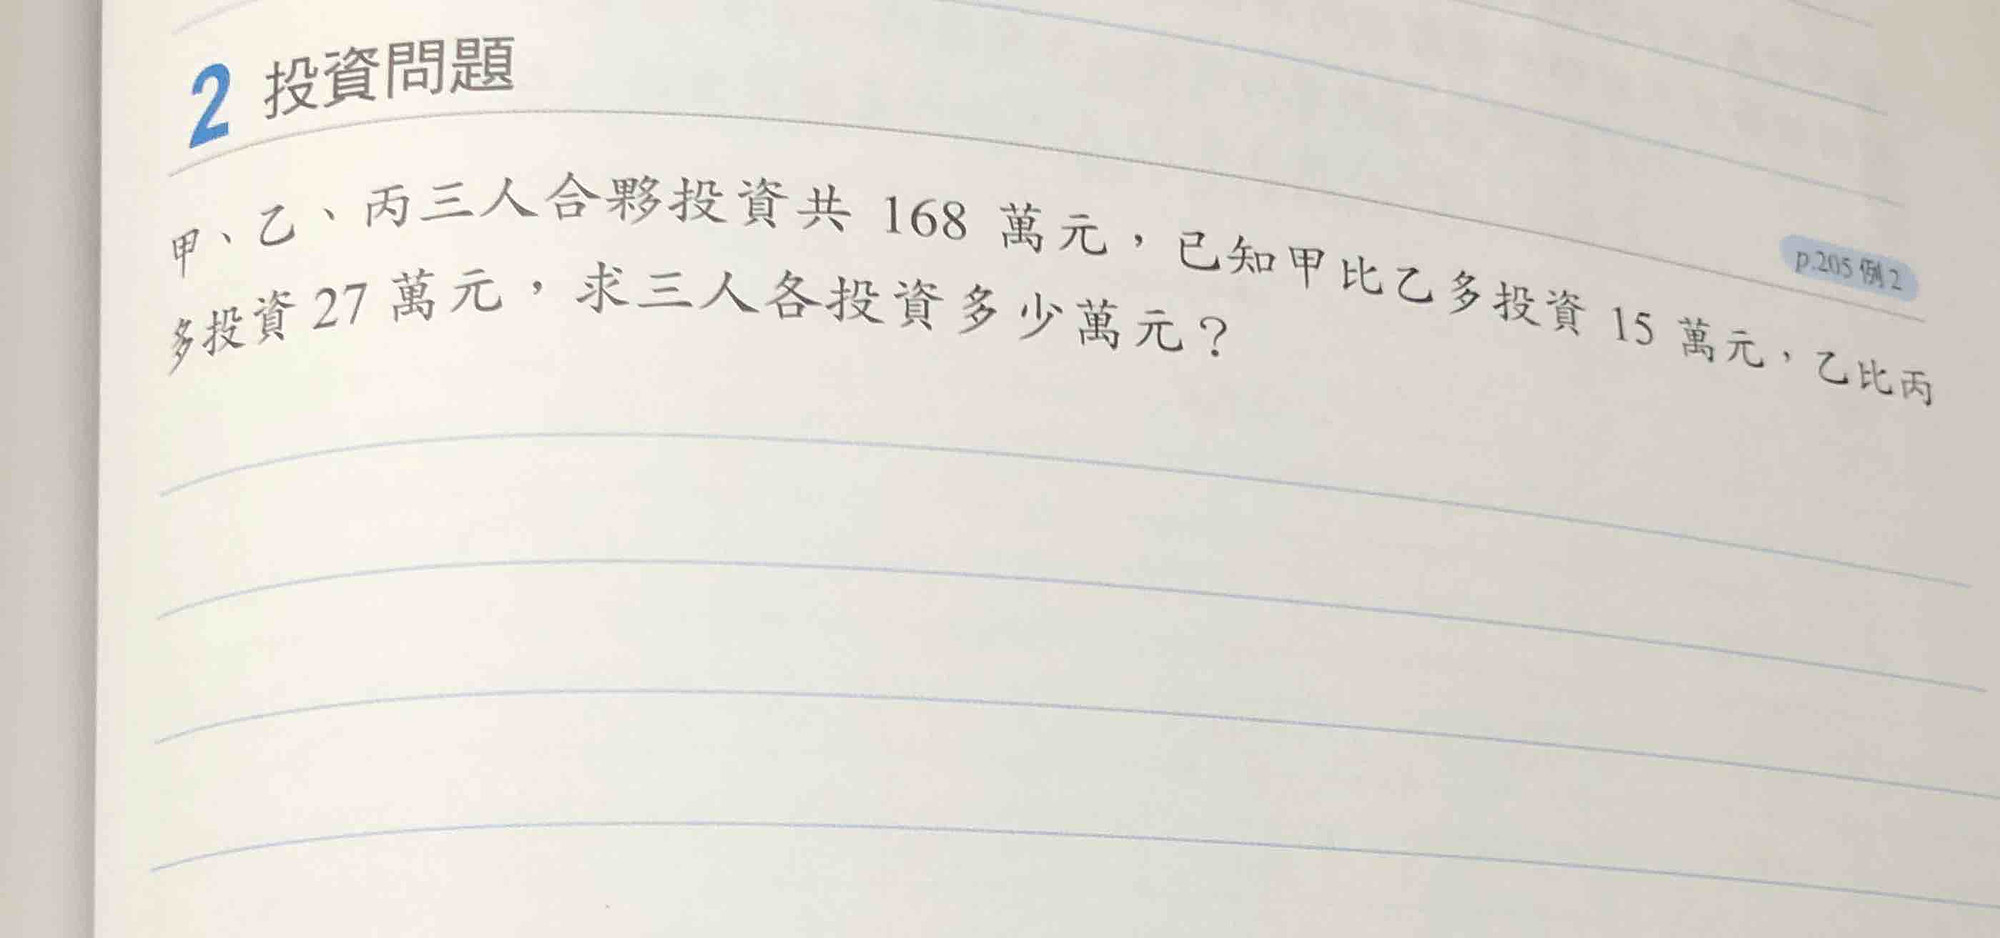 2 投資問題
p.205 例 2
甲、乙、丙三人合夥投資共 168 萬元，已知甲比乙多投資 15 萬元，乙比丙
多投資 27 萬元，求三人各投資多少萬元？